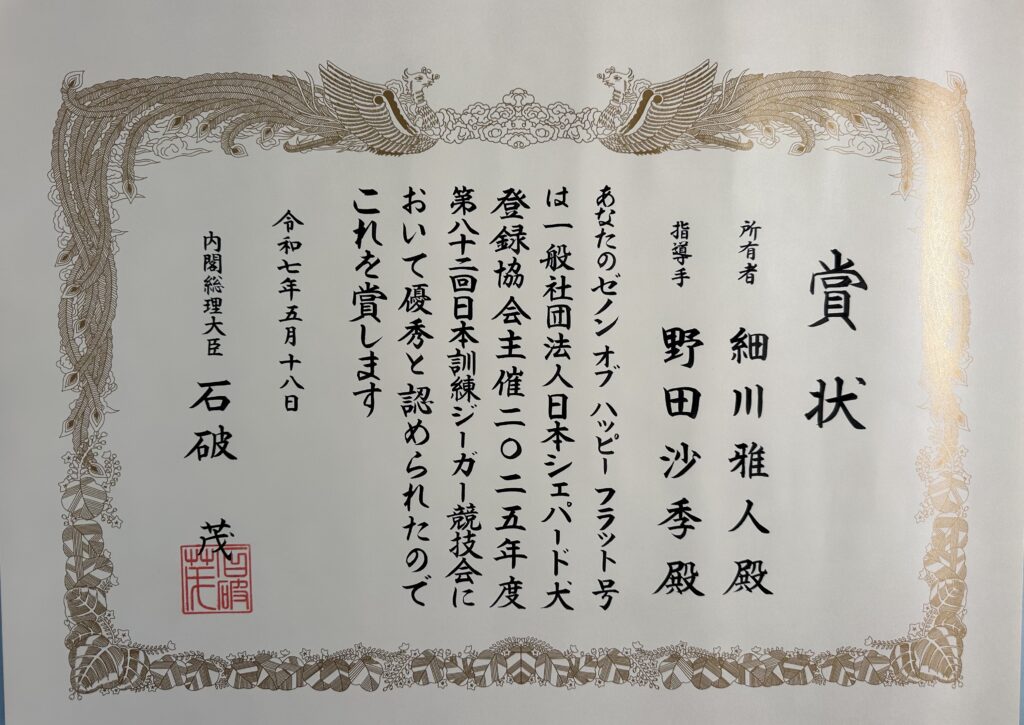 賞状
所有者 細川雅人殿
指導手 野田沙季殿
あなたのゼノン オブ ハッピー フラット号
は一般社団法人日本シェパード犬
登録協会主催二〇二五年度
第八十二回日本訓練ジーガー競技会に
おいて優秀と認められたので
これを賞します
令和七年五月十八日
内閣総理大臣 石破 茂
石破茂